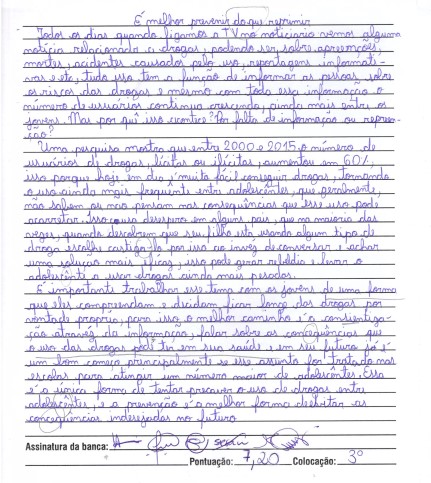 É melhor prevenir do que reprimir
Todos os dias quando ligamos a TV no noticiário vemos alguma
notícia relacionada a drogas, podendo ser sobre apreensões,
mortes, acidentes causados pelo uso, reportagens informati-
vas e etc, tudo isso tem a função de informar as pessoas sobre
os riscos das drogas e mesmo com toda essa informação o
número de usuários continua crescendo, ainda mais entre os
jovens. Mas por quê isso acontece? Por falta de informação ou repres-
são?
Uma pesquisa mostra que entre 2000 e 2015 o número de
usuários de drogas, lícitas ou ilícitas, aumentou em 60%,
isso porque hoje em dia é muito fácil conseguir drogas, tornando
o uso ainda mais frequente entre adolescentes, que geralmente,
não sabem ou não pensam nas consequências que esse uso pode
acarretar. Isso causa desespero em alguns pais, que na maioria das
vezes, quando descobrem que seu filho está usando algum tipo de
droga escolhe castigá-lo por isso ao invés de conversar e achar
uma solução mais eficaz, isso pode gerar rebeldia e levar o
adolescente a usar drogas ainda mais pesadas.
É importante trabalhar esse tema com os jovens de uma forma
que eles compreendam e decidam ficar longe das drogas por
vontade própria, para isso, o melhor caminho é a
ção através da informação, falar sobre as concequências que
o uso das drogas pode ter em sua saúde e em seu futuro já é
um bom começo principalmente se esse assunto for tratado nas
escolas para atingir um número maior de adolescentes. Essa
é a única forma de tentar o uso de drogas entre
adolescentes, e a prevenção é a melhor forma de evitar as
conceqüências indesejadas no futuro
Assinatura da banca:
Pontuação: 7,20 Colocação: 3º